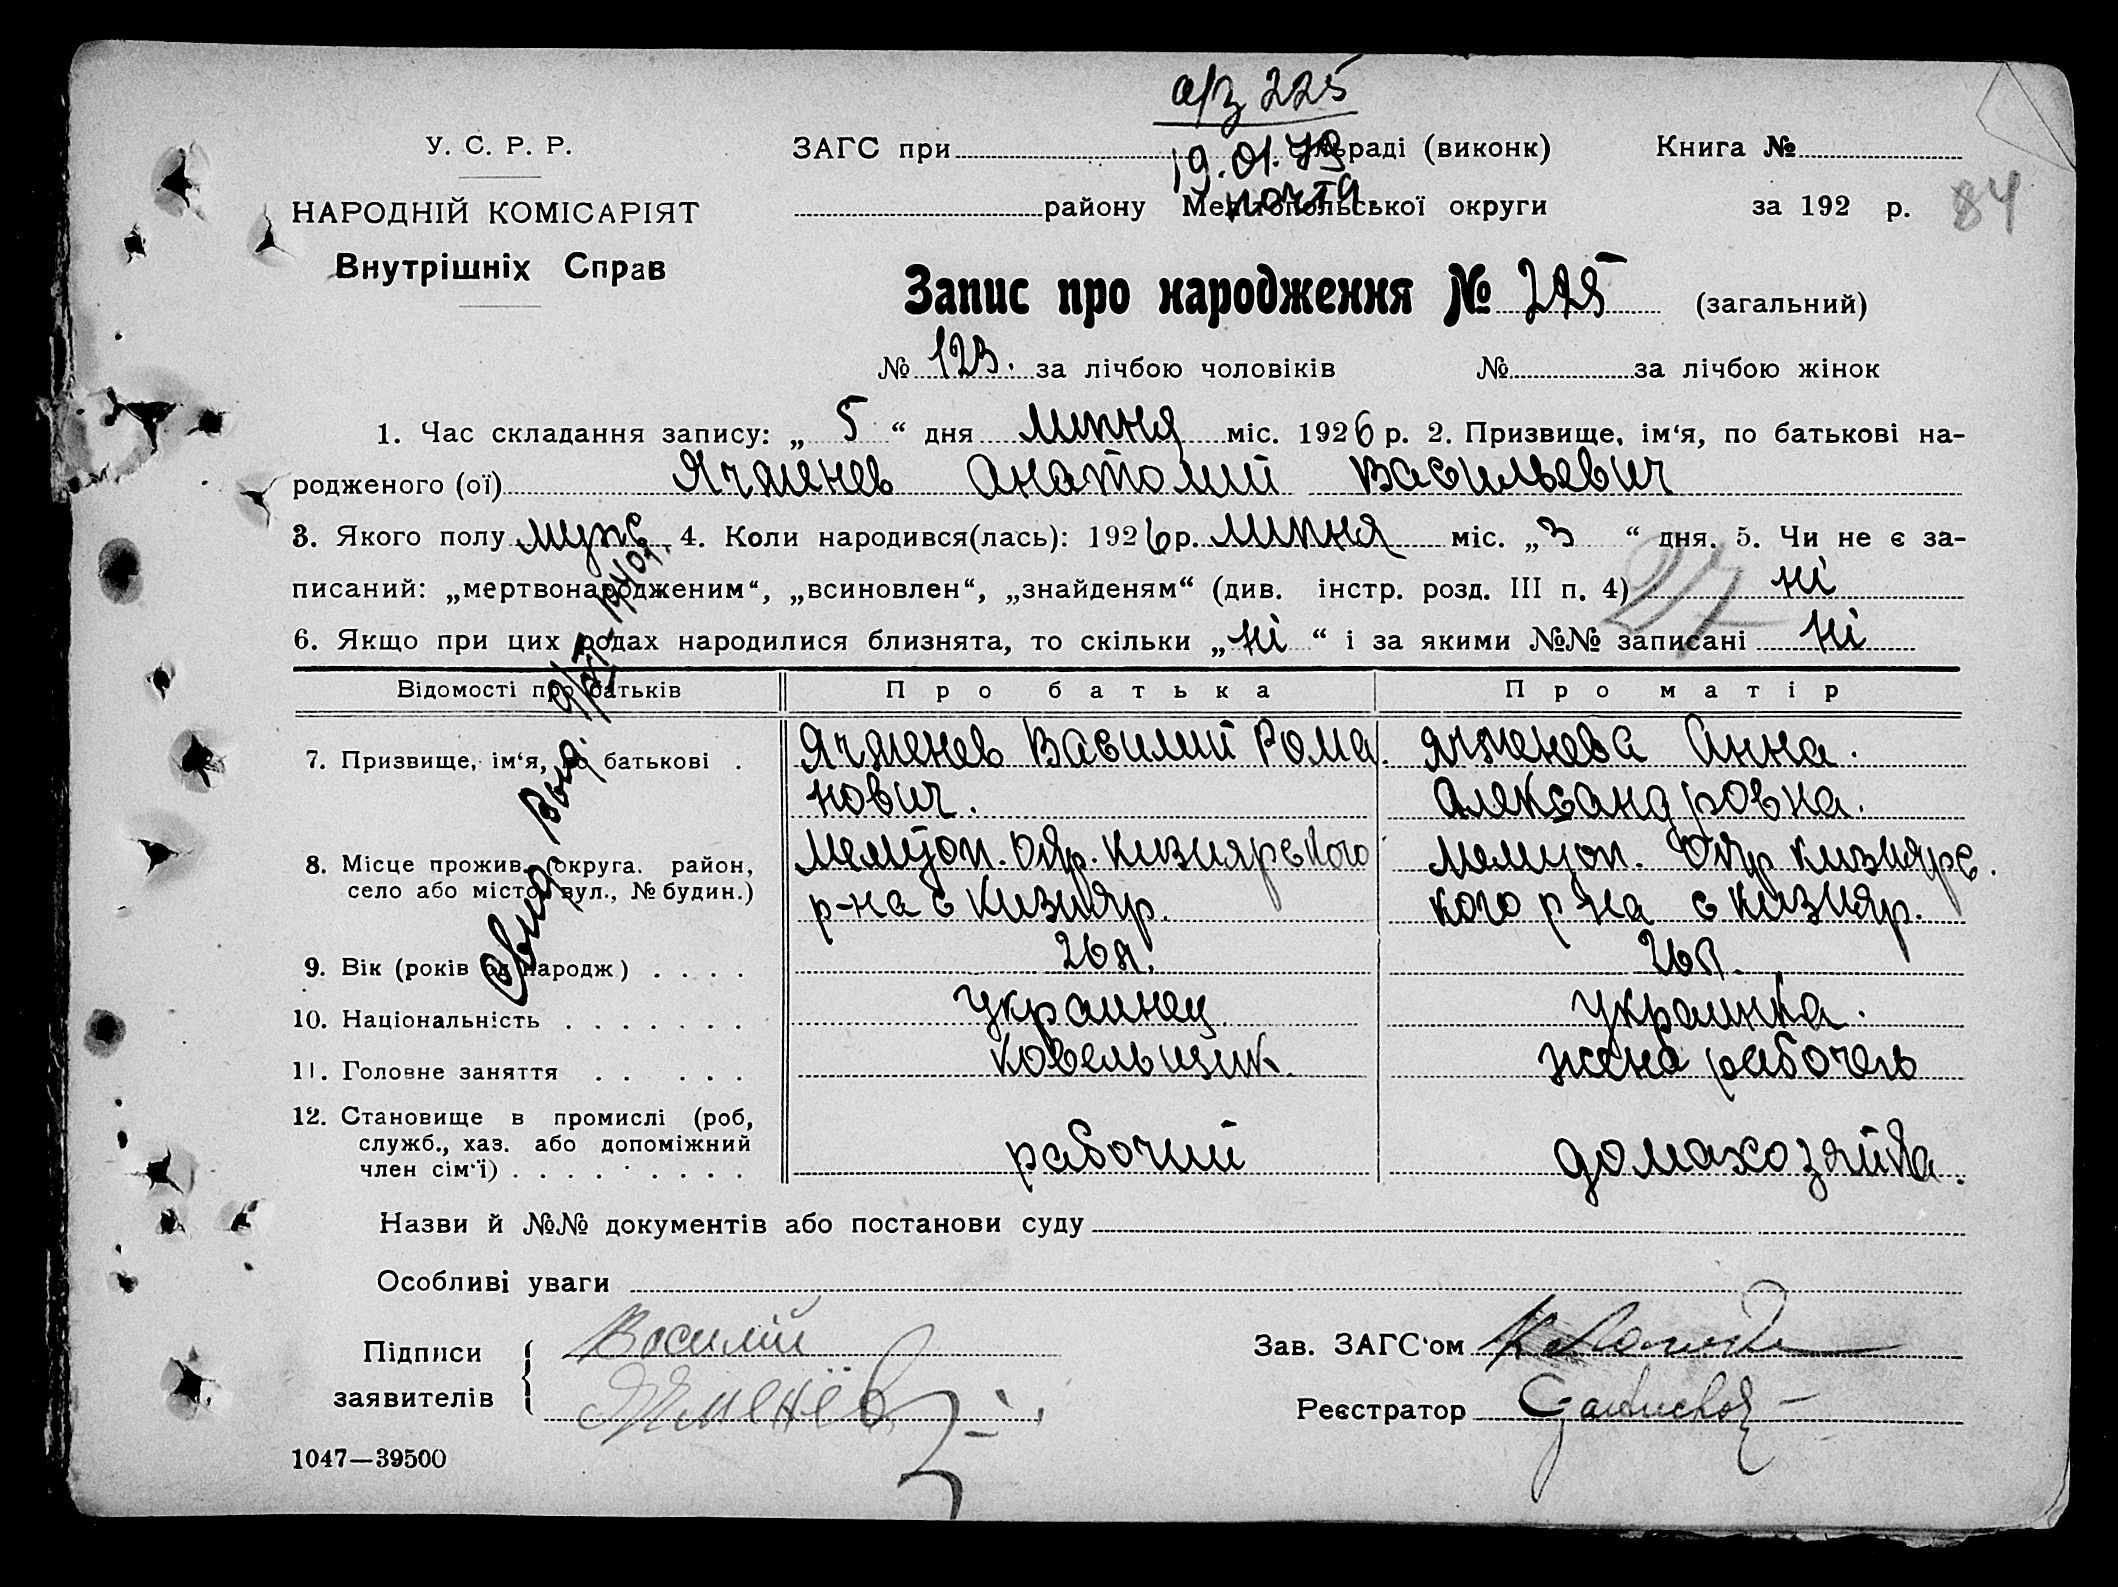 а/з 225
У. С. Р. Р.
ЗАГС при раді (виконк) Книга №
19.01.79
НАРОДНІЙ КОМІСАРІЯТ
району Мелітопольської округи за 192 р. 84
почта
Внутрішніх Справ
Запис про народження № 225 (загальний)
№ 123. за лічбою чоловіків № за лічбою жінок
1. Час складання запису: „ 5 “ дня липня міс. 1926 р. 2. Призвище, ім‘я, по батькові на-
родженого (ої) Ячменев Анатолий Васильевич
3. Якого полу муж 4. Коли народився(лась): 1926 р. липня міс. „ 3 “ дня. 5. Чи не є за-
писаний: „мертвонародженим“, „всиновлен“, „знайденям“ (див. інстр. розд. III п. 4) ні
27
6. Якщо при цих родах народилися близнята, то скільки „ ні “ і за якими №№ записані ні
Відомості про батьків Про батька Про матір
7. Призвище, ім‘я, по батькові . Ячменев Василий Рома Ячменева Анна.
нович. Александровна.
8. Місце прожив. (округа. район, Мелитоп. Окр. Кизиярского Мелитоп. Окр Кизиярс
село або місто, вул., № будин.) р-на с Кизияр. кого р-на с Кизияр.
9. Вік (років од народж) . . . . 26 л. 26 л.
10. Національність . . . . . . . украинец украинка.
11. Головне заняття . . . . . жена рабочего
12. Становище в промислі (роб,
служб., хаз. або допоміжний
член сім‘ї) . . . . . . . . рабочий домахозяйка.
Свид. выд.
Назви й №№ документів або постанови суду
Особливі уваги
Підписи Василий Зав. ЗАГС‘ом
заявителів Ячменёв Реєстратор
1047—39500